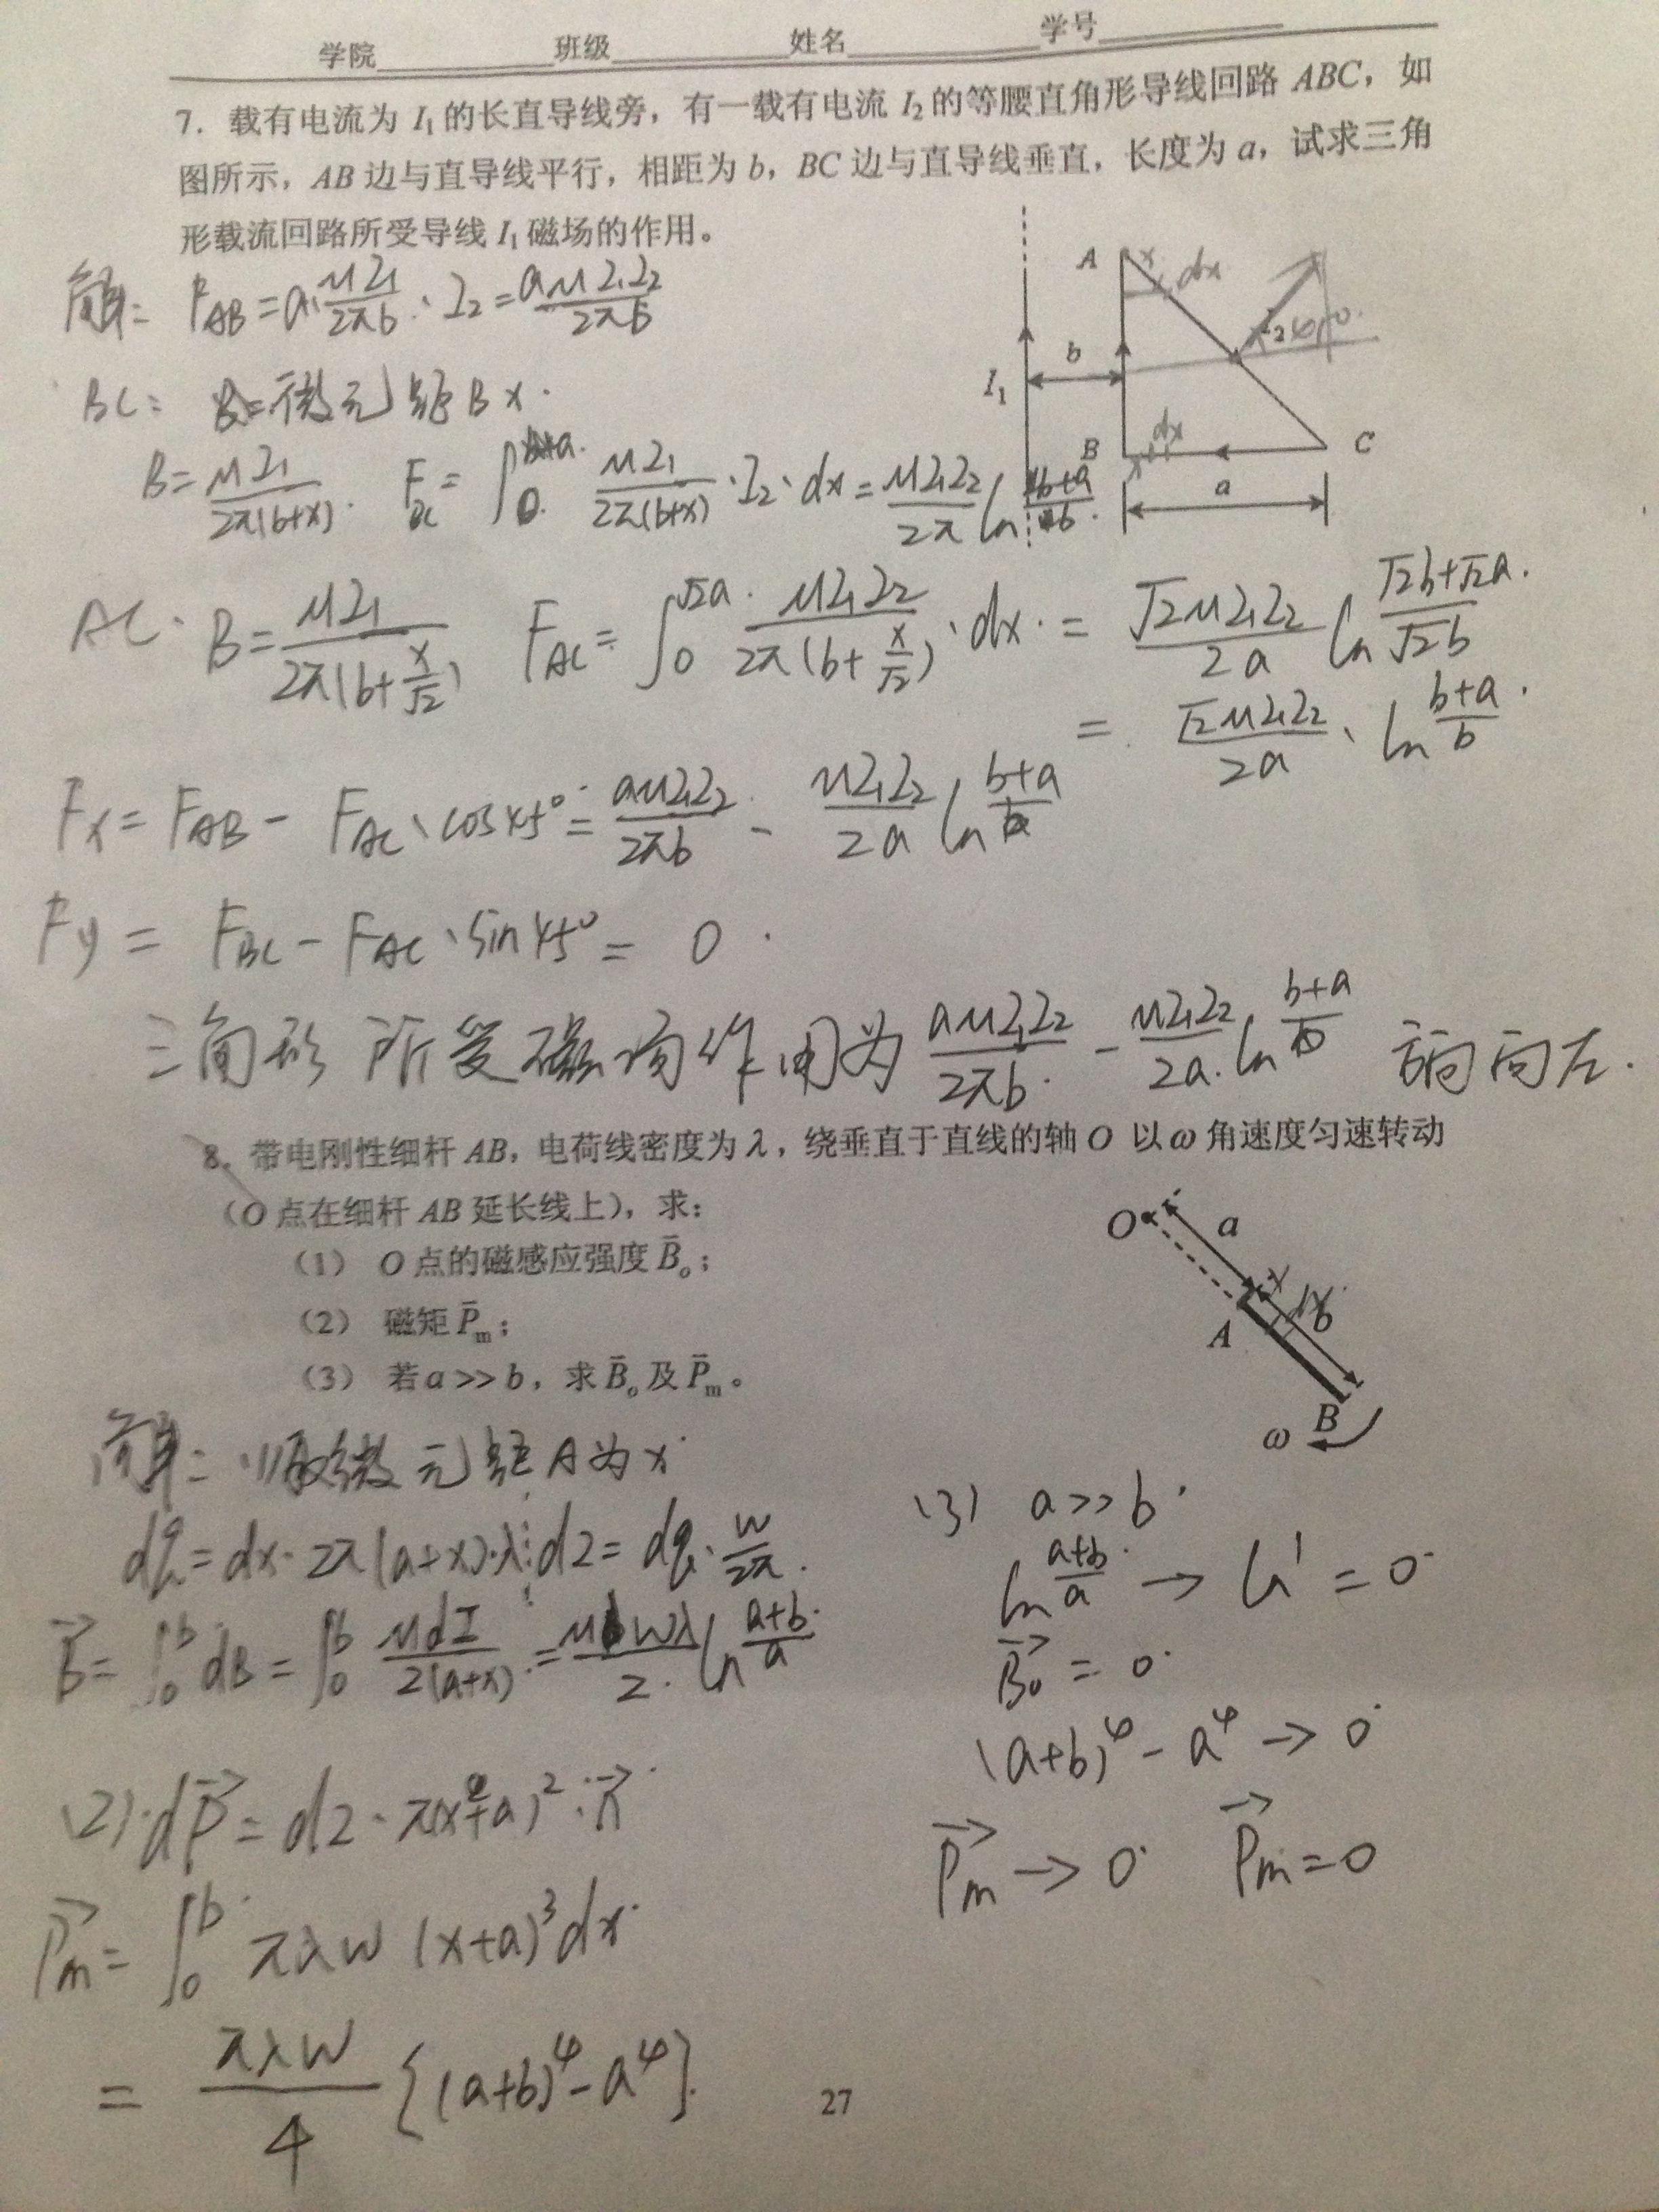 学院 班级 姓名 学号
7. 载有电流为 I₁ 的长直导线旁，有一载有电流 I₂ 的等腰直角形导线回路 ABC，如
图所示，AB 边与直导线平行，相距为 b，BC 边与直导线垂直，长度为 a，试求三角
形载流回路所受导线 I₁ 磁场的作用。
A x dx
I₁ b
B dx C
a
解: F_AB = a·μI₁/2πb · I₂ = aμI₁I₂/2πb
BC: 微元距B x.
B = μI₁/2π(b+x). F_BC = ∫₀ᵃ μI₁/2π(b+x) · I₂ · dx = μI₁I₂/2π ln (b+a)/b.
AC. B = μI₁/2π(b+x/√2) F_AC = ∫₀^√2a μI₁I₂/2π(b+x/√2) · dx. = √2μI₁I₂/2a ln (√2b+√2a)/√2b
= √2μI₁I₂/2a · ln (b+a)/b.
Fx = F_AB − F_AC · cos45° = aμI₁I₂/2πb − μI₁I₂/2a ln (b+a)/b
Fy = F_BC − F_AC · sin45° = 0.
三角形 所受磁场作用为 aμI₁I₂/2πb − μI₁I₂/2a ln (b+a)/b 方向向左.
8. 带电刚性细杆 AB，电荷线密度为 λ，绕垂直于直线的轴 O 以 ω 角速度匀速转动
（O 点在细杆 AB 延长线上），求：
（1） O 点的磁感应强度 B̄ₒ；
（2） 磁矩 P̄ₘ；
（3） 若 a >> b，求 B̄ₒ 及 P̄ₘ。
O a
x dx
A b
B
ω
解: (1) 取微元距A为x.
dq = dx · 2π(a+x)·λ dI = dq · w/2π.
B⃗ = ∫₀ᵇ dB = ∫₀ᵇ μdI/2(a+x) = μwλ/2 ln (a+b)/a
(2) dP⃗ = dI · π(x+a)² · n⃗
P⃗m = ∫₀ᵇ πλw (x+a)³dx
= πλw/4 {(a+b)⁴ − a⁴}.
(3) a >> b.
ln (a+b)/a → ln1 = 0
B⃗₀ = 0.
(a+b)⁴ − a⁴ → 0
P⃗m → 0 P⃗m = 0
27